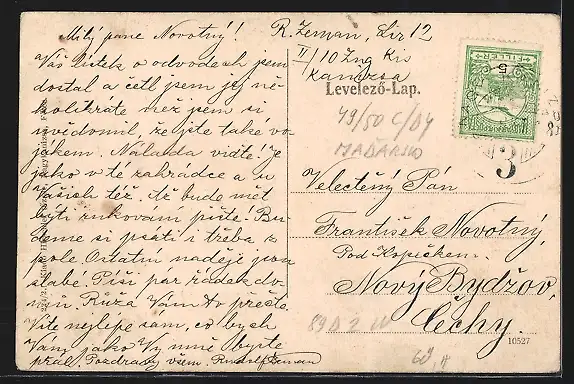 Milý pane Novotný!
Váš lístek o odvodech jsem
dostal a četl jsem jej ně-
kolikráte než jsem si
uvědomil, že jste také vo-
jákem. Nálada viďte! Je
jako v té zahrádce a u
Vašich též. Až bude mět
býti rukování pište. Bu-
deme si psáti i třeba z
pole. Ostatní naděje jsou
slabé. Píši pár řádek do-
mů. Ruza Vám to přeste.
Víte nejlépe sám, co bych
Vám jako Vy mně byste
přál. Pozdravy všem. Rudolf Zeman
R. Zeman, Lir 12
II/10 Zug Kis
Kanizsa
Levelező-Lap.
49/50 C/D4
MAĎARSKO
FILLÉR
5
3
Velectěný Pán
František Novotný,
Pod Kopečkem
Nový Bydžov,
Čechy.
89D2 IV
10527